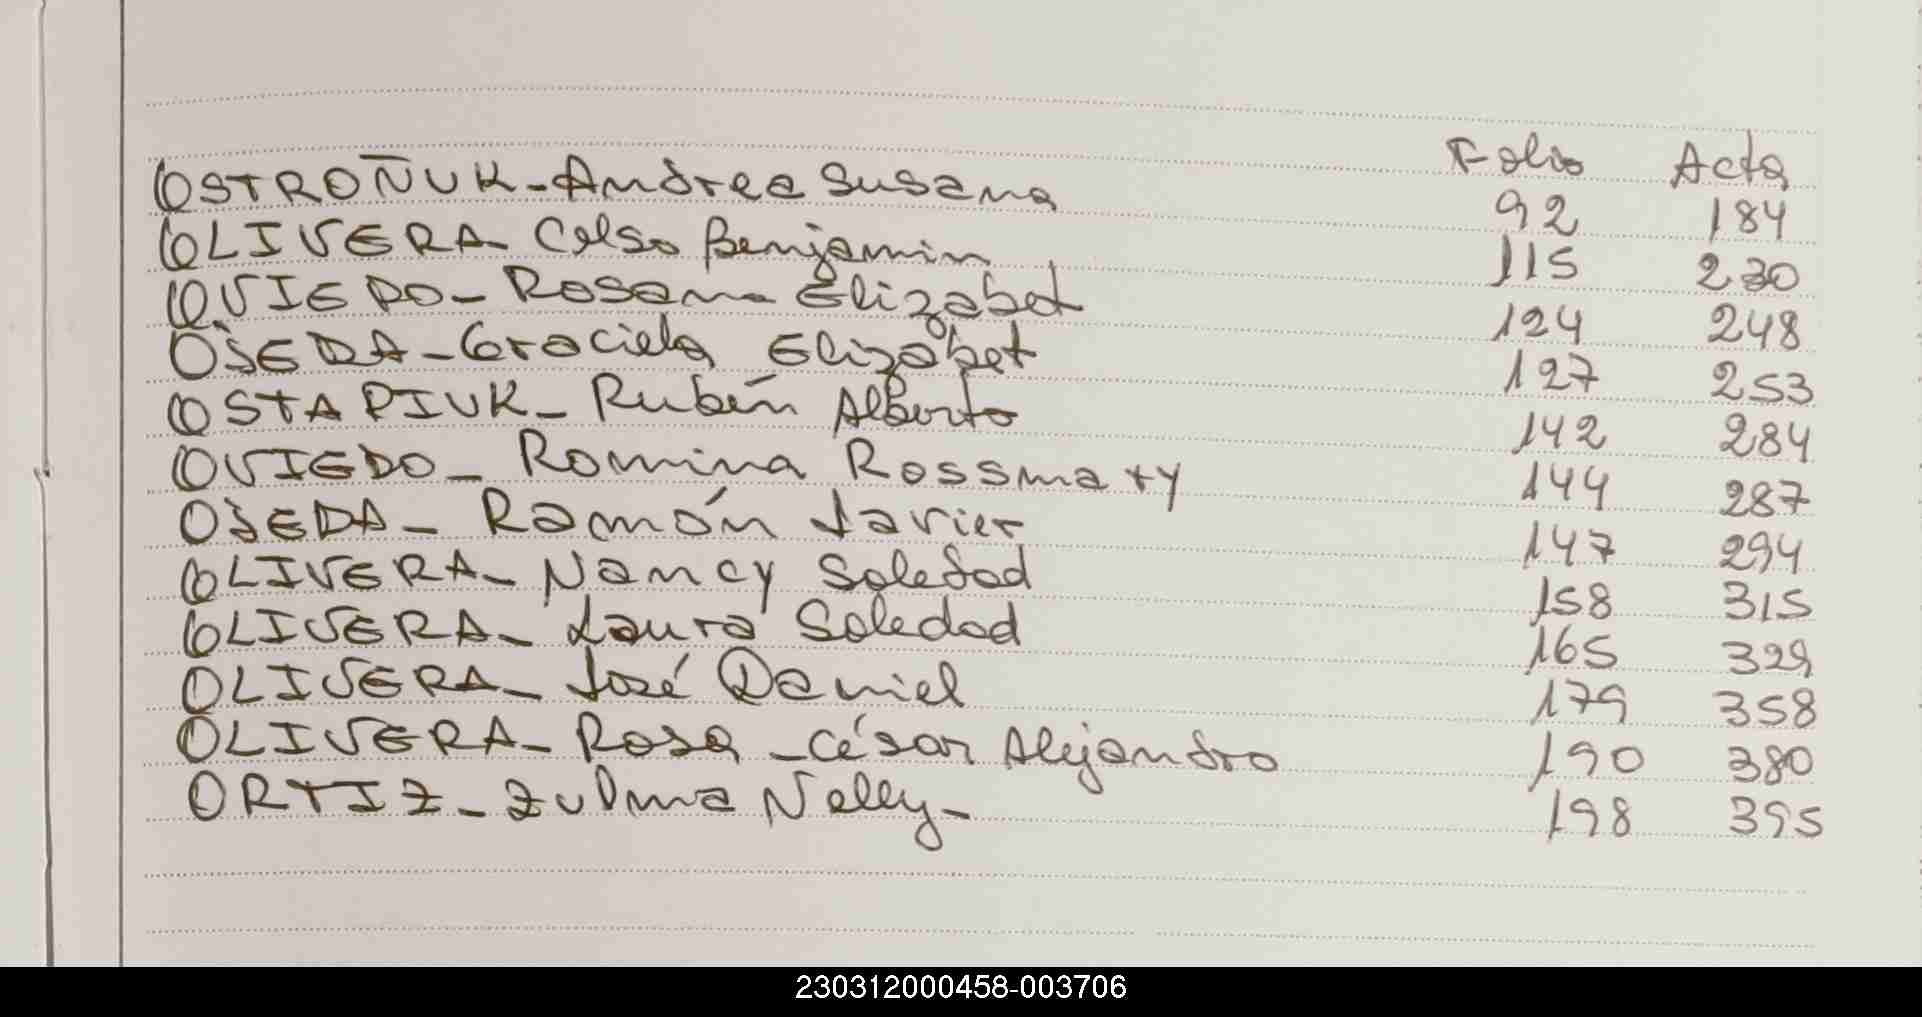 Folio Acta
OSTROÑUK - Andrea Susana 92 184
OLIVERA - Celso Benjamin 115 230
OVIEDO - Rosana Elizabet 124 248
OJEDA - Graciela Elizabet 127 253
OSTAPIUK - Rubén Alberto 142 284
OVIEDO - Romina Rossmary 144 287
OJEDA - Ramón Javier 147 294
OLIVERA - Nancy Soledad 158 315
OLIVERA - Laura Soledad 165 329
OLIVERA - José Daniel 179 358
OLIVERA - Rosa - César Alejandro 190 380
ORTIZ - Zulma Nelly - 198 395
230312000458-003706